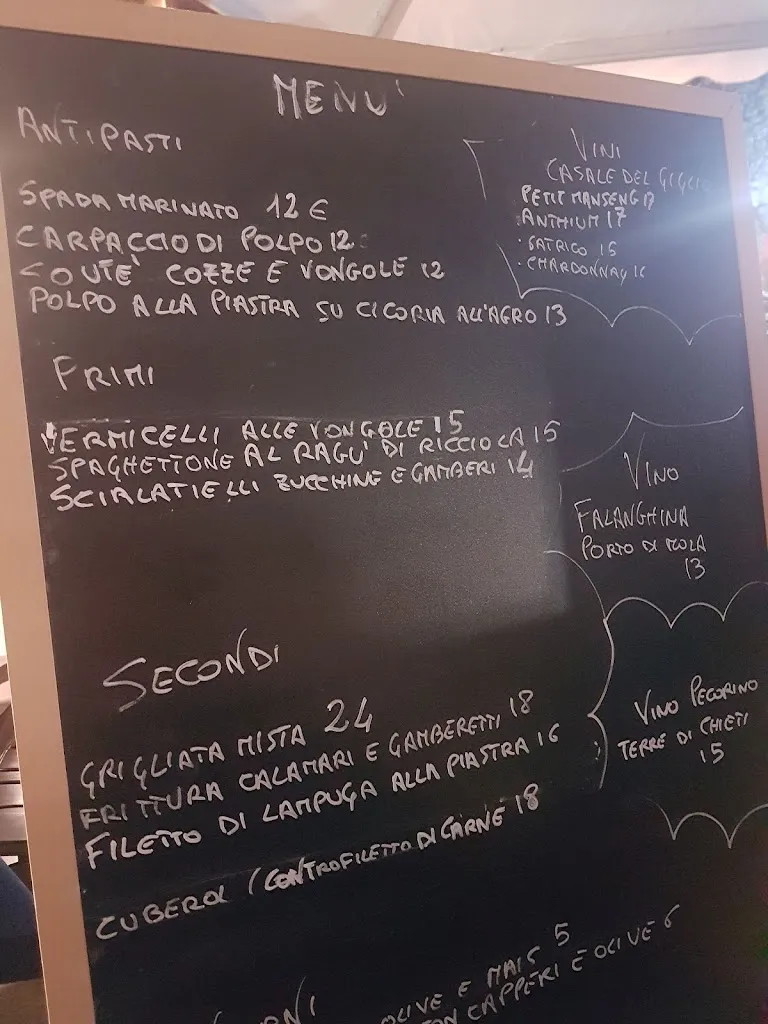 MENU'
ANTIPASTI
SPADA MARINATO 12 €
CARPACCIO DI POLPO 12
SOUTE' COZZE E VONGOLE 12
POLPO ALLA PIASTRA SU CICORIA ALL'AGRO 13
VINI
CASALE DEL GIGLIO
PETIT MANSENG 17
ANTHIUM 17
· SATRICO 15
· CHARDONNAY 16
PRIMI
VERMICELLI ALLE VONGOLE 15
SPAGHETTONE AL RAGU' DI RICCIOLA 15
SCIALATIELLI ZUCCHINE E GAMBERI 14
VINO
FALANGHINA
PORTO DI MOLA
13
SECONDI
GRIGLIATA MISTA 24
FRITTURA CALAMARI E GAMBERETTI 18
FILETTO DI LAMPUGA ALLA PIASTRA 16
CUBEROL (CONTROFILETTO DI CARNE 18
VINO PECORINO
TERRE DI CHIETI
15
OLIVE E MAIS 5
CAPPERI E OLIVE 6